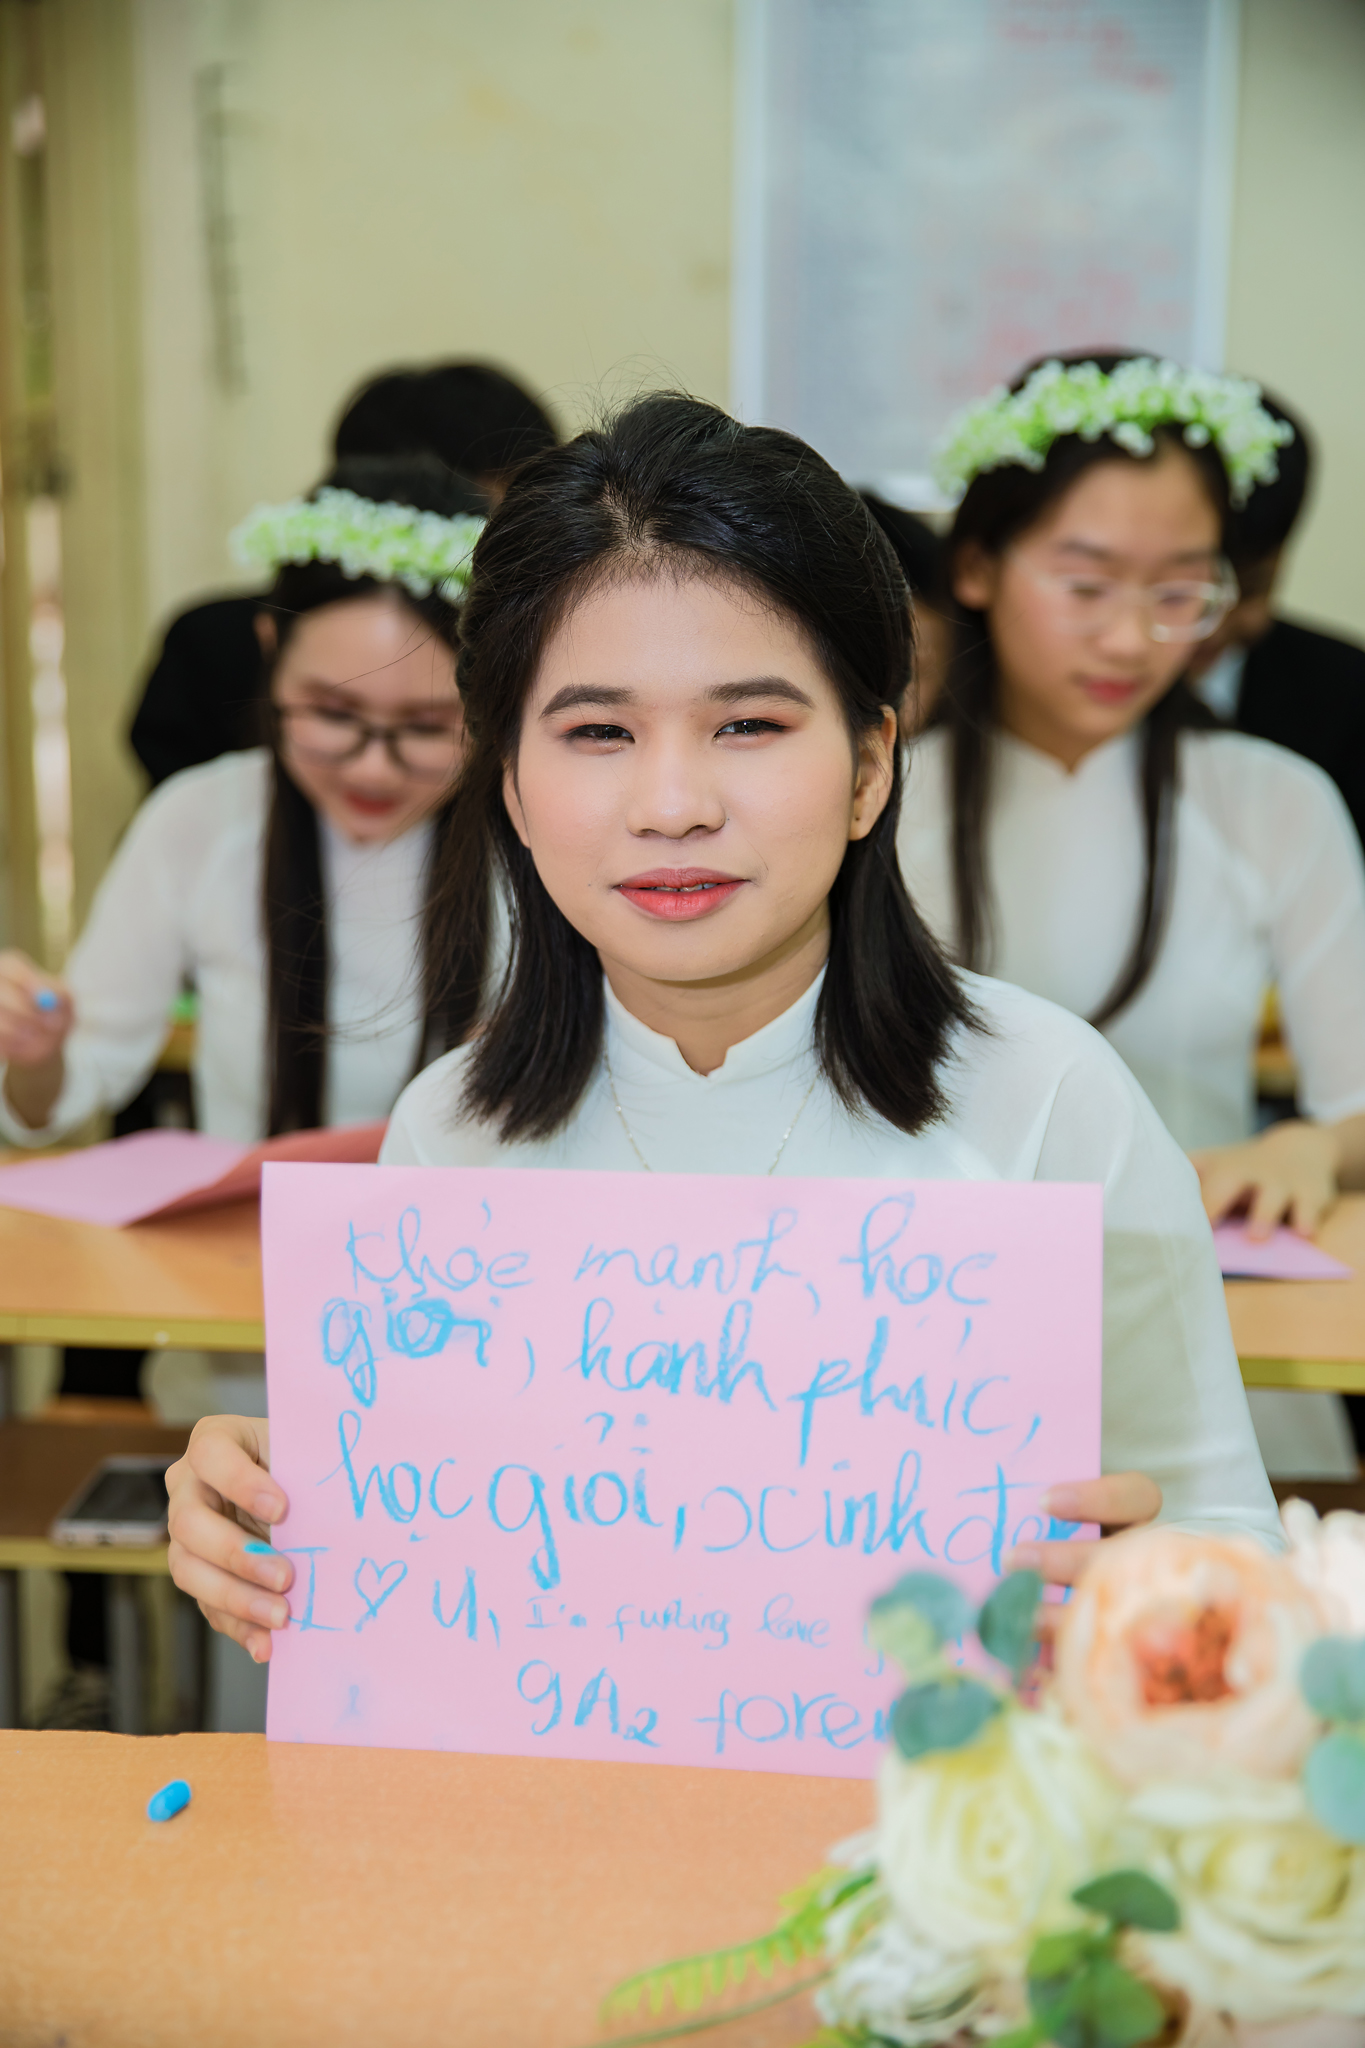 Khỏe mạnh, học
giỏi, hạnh phúc,
học giỏi, xinh
I ♡ U, I'm fucking love
9A2